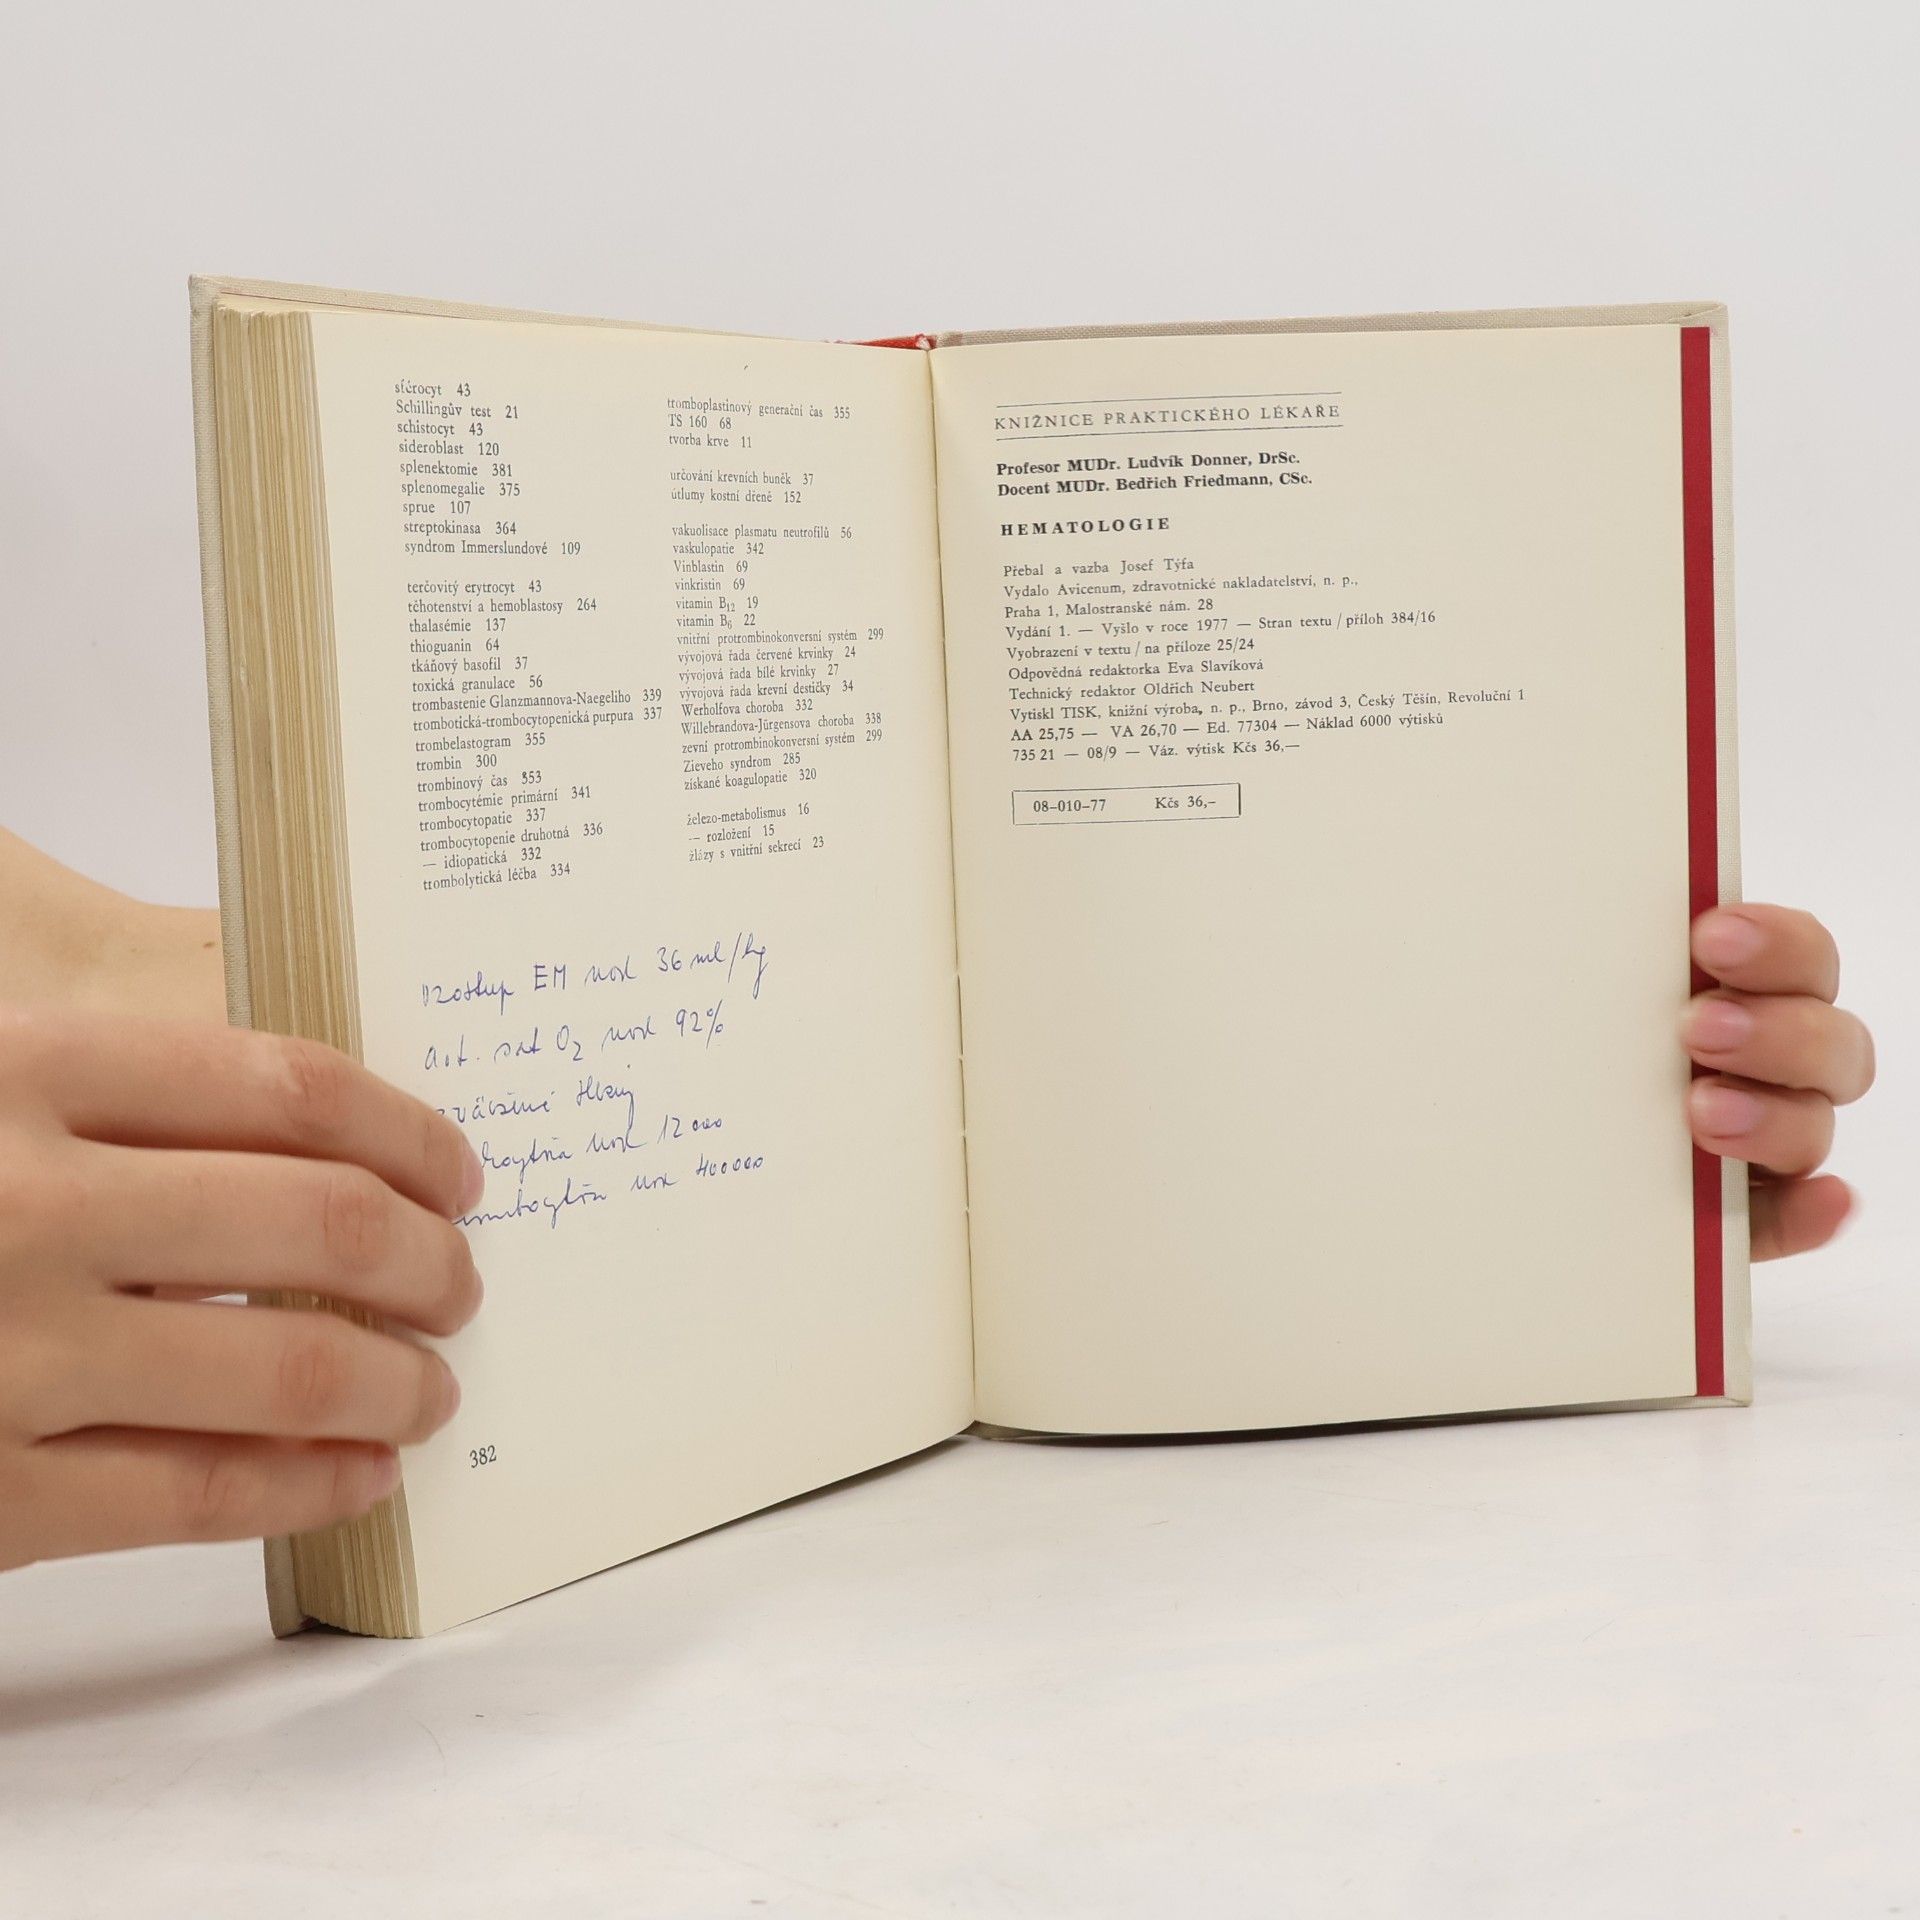 sférocyt 43
Schillingův test 21
schistocyt 43
sideroblast 120
splenektomie 381
splenomegalie 375
sprue 107
streptokinasa 364
syndrom Immerslundové 109
terčovitý erytrocyt 43
těhotenství a hemoblastosy 264
thalasémie 137
thioguanin 64
tkáňový basofil 37
toxická granulace 56
trombastenie Glanzmannova-Naegeliho 339
trombotická-trombocytopenická purpura 337
trombelastogram 355
trombin 300
trombinový čas 353
trombocytémie primární 341
trombocytopatie 337
trombocytopenie druhotná 336
— idiopatická 332
trombolytická léčba 334
tromboplastinový generační čas 355
TS 160 68
tvorba krve 11
určování krevních buněk 37
útlumy kostní dřeně 152
vakuolisace plasmatu neutrofilů 56
vaskulopatie 342
Vinblastin 69
vinkristin 69
vitamin B12 19
vitamin B6 22
vnitřní protrombinokonversní systém 299
vývojová řada červené krvinky 24
vývojová řada bílé krvinky 27
vývojová řada krevní destičky 34
Werholfova choroba 332
Willebrandova-Jürgensova choroba 338
zevní protrombinokonversní systém 299
Zieveho syndrom 285
získané koagulopatie 320
železo-metabolismus 16
— rozložení 15
žlázy s vnitřní sekrecí 23
vzostup EM nod 36 ml/kg
art. sat O2 nod 92%
nod 12 000
nod 400000
382
KNIŽNICE PRAKTICKÉHO LÉKAŘE
Profesor MUDr. Ludvík Donner, DrSc.
Docent MUDr. Bedřich Friedmann, CSc.
HEMATOLOGIE
Přebal a vazba Josef Týfa
Vydalo Avicenum, zdravotnické nakladatelství, n. p.,
Praha 1, Malostranské nám. 28
Vydání 1. — Vyšlo v roce 1977 — Stran textu / příloh 384/16
Vyobrazení v textu / na příloze 25/24
Odpovědná redaktorka Eva Slavíková
Technický redaktor Oldřich Neubert
Vytiskl TISK, knižní výroba, n. p., Brno, závod 3, Český Těšín, Revoluční 1
AA 25,75 — VA 26,70 — Ed. 77304 — Náklad 6000 výtisků
735 21 — 08/9 — Váz. výtisk Kčs 36,—
08-010-77 Kčs 36,-